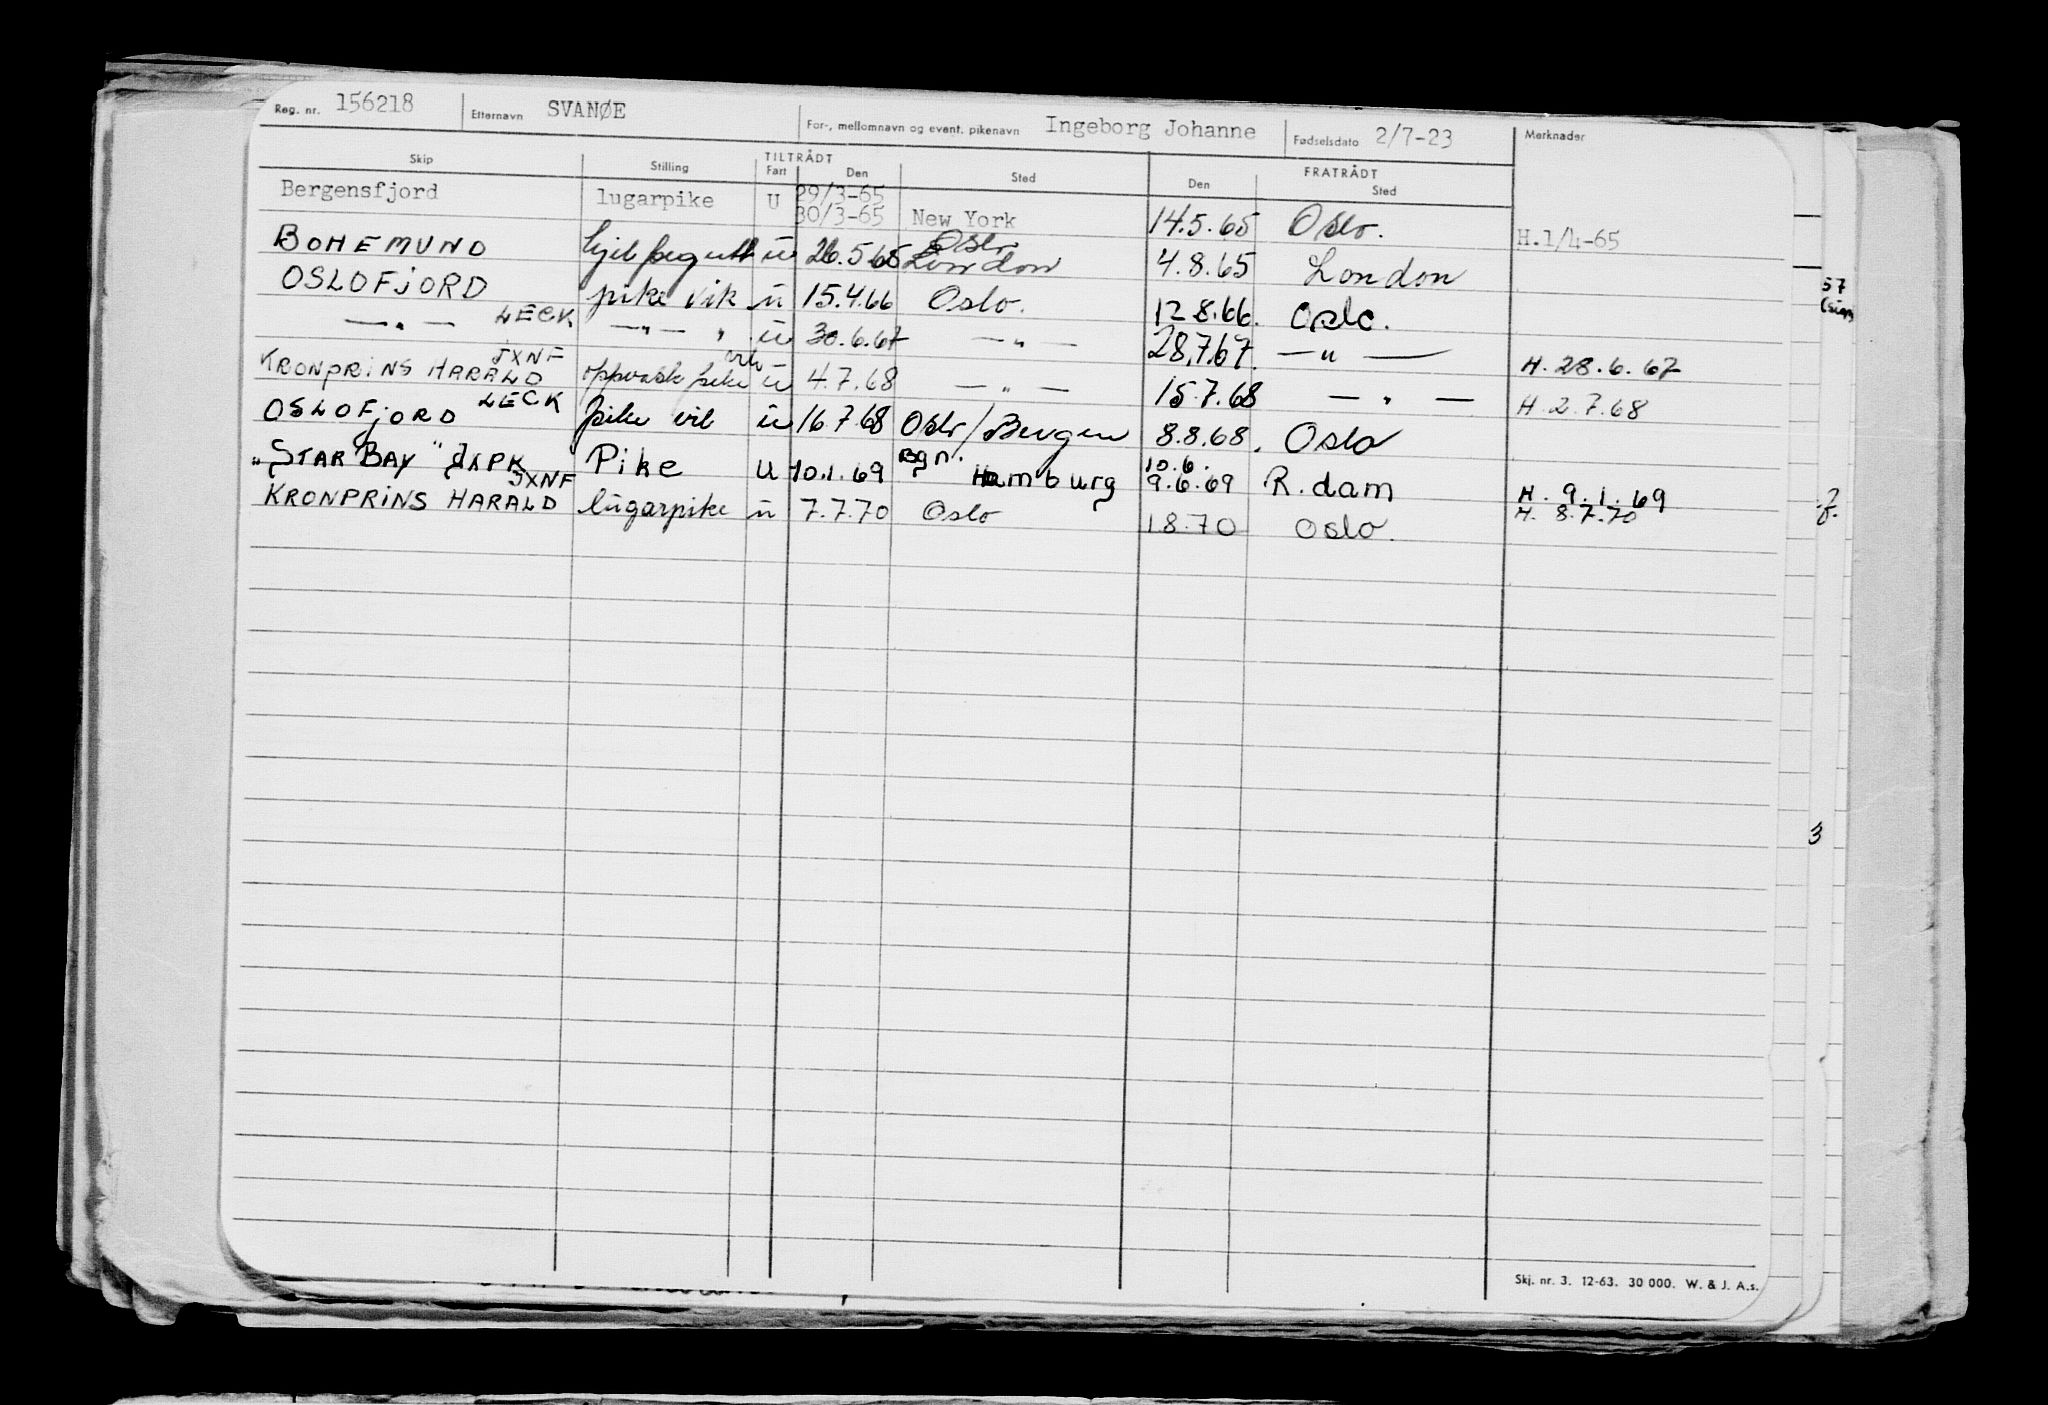 Reg. nr. 156218 Etternavn SVANØE For-, mellomnavn og event. pikenavn Ingeborg Johanne Fødselsdato 2/7-23 Merknader
TILTRÅDT FRATRÅDT
Skip Stilling Fart Den Sted Den Sted
Bergensfjord lugarpike U 29/3-65
30/3-65 New York 14.5.65 Oslo. H.1/4-65
Oslo
BOHEMUND u 26.5.65 London 4.8.65 London
OSLOFJORD pike vik u 15.4.66 Oslo. 12.8.66. Oslo.
—„— LECK —„— „ u 30.6.67 —„— 28.7.67. —„— H. 28.6.67
JXNF vik
KRONPRINS HARALD oppvask pike u 4.7.68 —„— 15.7.68 —„— H. 2.7.68
LECK
OSLOFJORD pike vik u 16.7.68 Oslo/Bergen 8.8.68. Oslo
Bgn. 10.6.
„STAR BAY" Pike U 10.1.69 Hamburg 9.6.69 R.dam H. 9.1.69
JXNF
KRONPRINS HARALD lugarpike u 7.7.70 Oslo 1.8.70 Oslo. H. 8.7.70
57
3
Skj. nr. 3. 12-63. 30 000. W. & J. A.s.